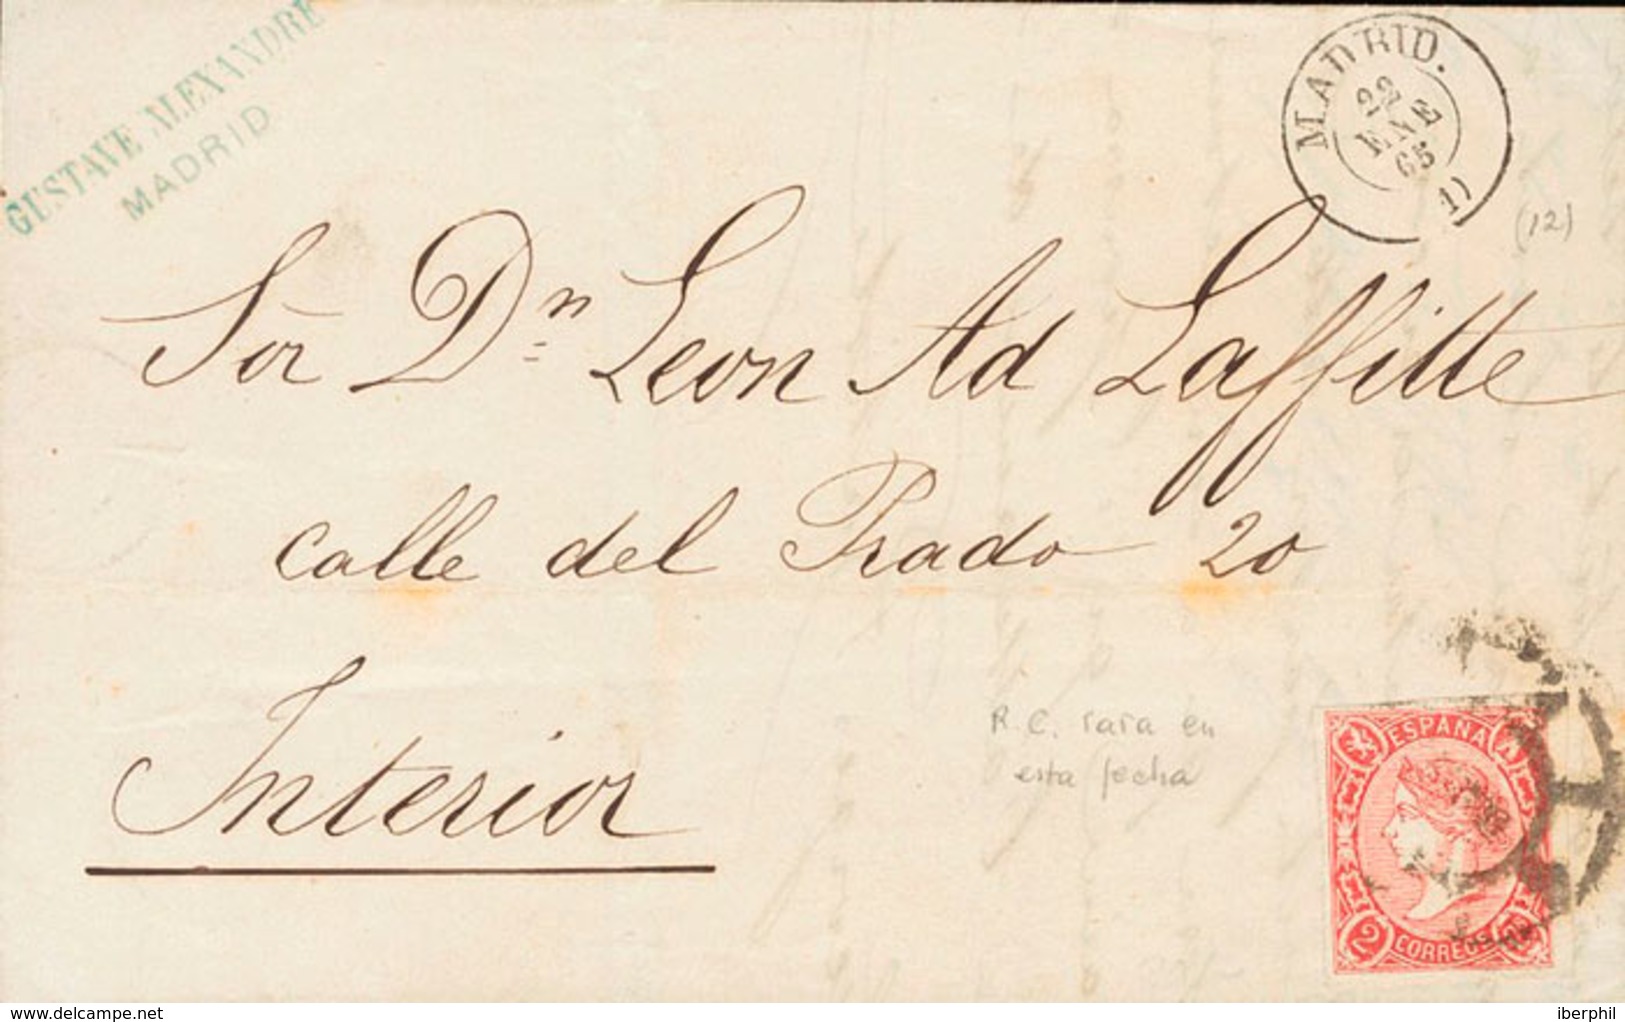 GUSTAVE ALEXANDRE
MADRID
MADRID.
22
ENE
65
(12)
Sor Dn Leon Ad Laffitte
calle del Prado 20
Interior
R.C. rara en
esta fecha
ESPAÑA
2
CORREOS
delcampe.net
iberphil